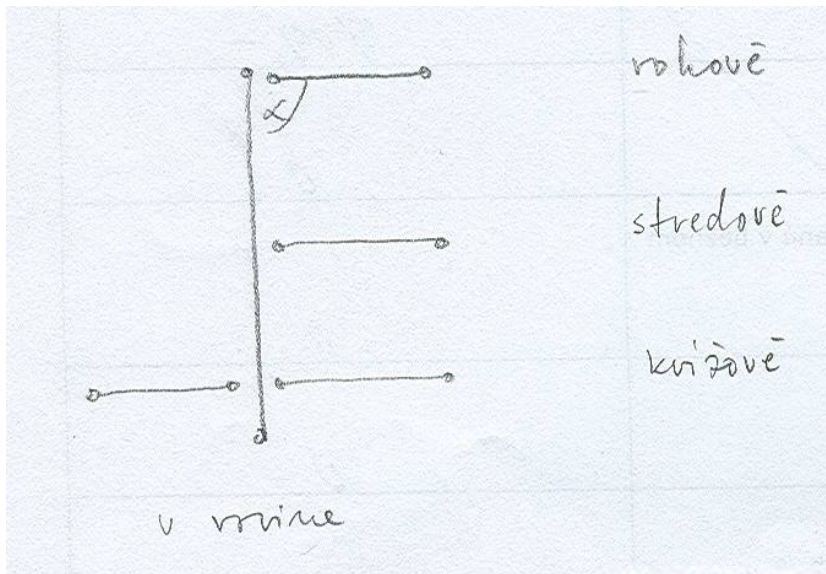 rohové
α
stredové
krížové
v rovine